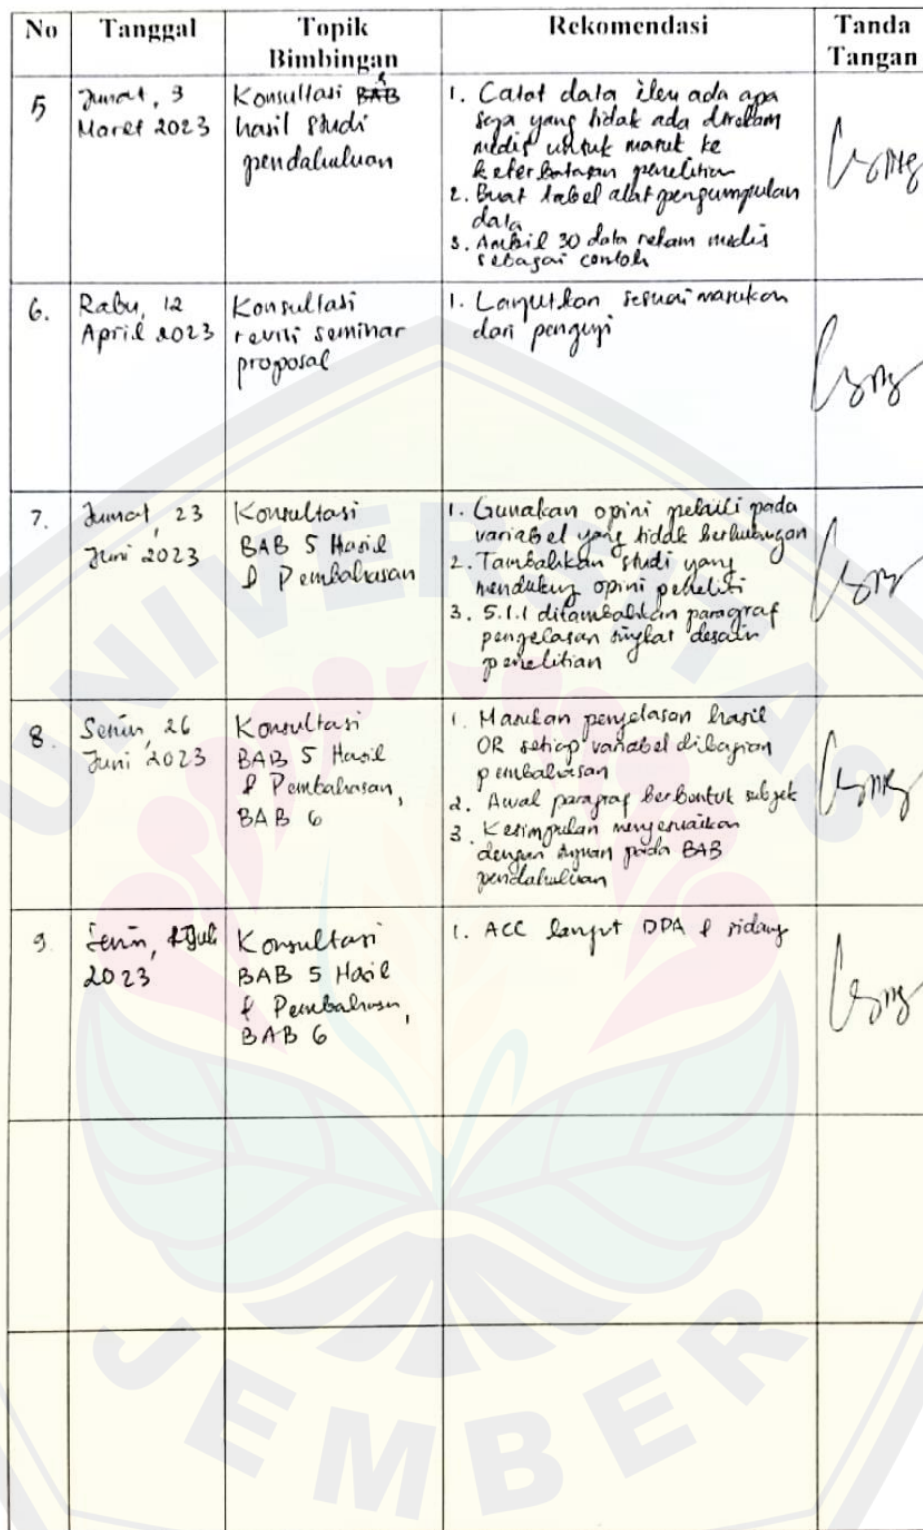 No Tanggal Topik Bimbingan Rekomendasi Tanda Tangan
5
Jumat, 3
Maret 2023
Konsultasi BAB
hasil studi
pendahuluan
1. Catat data ada apa
saja yang tidak ada direkam
medis untuk masuk ke
keterbatasan penelitian
2. Buat tabel alat pengumpulan
data
3. Ambil 30 data rekam medis
sebagai contoh
6.
Rabu, 12
April 2023
Konsultasi
revisi seminar
proposal
1. Lanjutkan sesuai masukan
dari penguji
7.
Jumat, 23
Juni 2023
Konsultasi
BAB 5 Hasil
& Pembahasan
1. Gunakan opini peneliti pada
variabel yang tidak berhubungan
2. Tambahkan studi yang
mendukung opini peneliti
3. 5.1.1 ditambahkan paragraf
penjelasan singkat desain
penelitian
8.
Senin, 26
Juni 2023
Konsultasi
BAB 5 Hasil
& Pembahasan,
BAB 6
1. Masukan penjelasan hasil
OR setiap variabel dibagian
pembahasan
2. Awal paragraf berbentuk subjek
3. Kesimpulan menyesuaikan
dengan tujuan pada BAB
pendahuluan
9.
Senin, Juli
2023
Konsultasi
BAB 5 Hasil
& Pembahasan,
BAB 6
1. ACC lanjut DPA & sidang
UNIVERSITAS
JEMBER